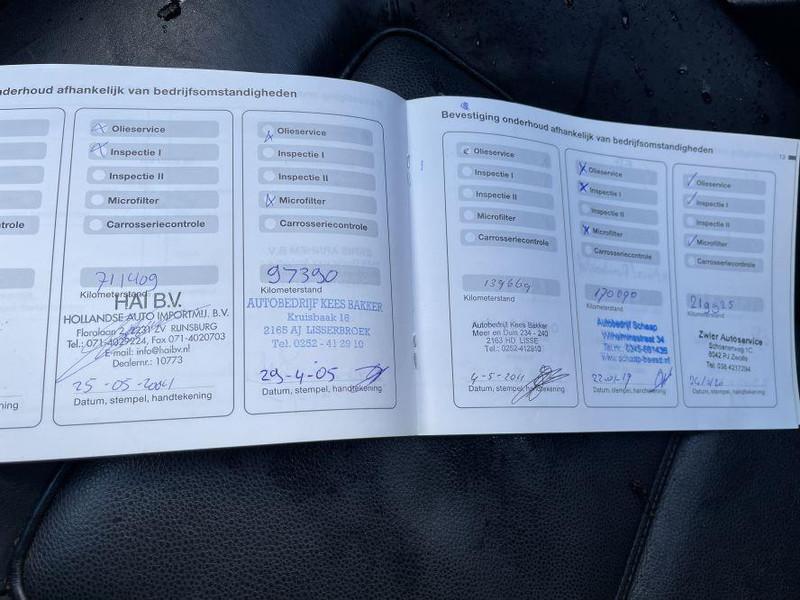 nderhoud afhankelijk van bedrijfsomstandigheden
trole
ning
Olieservice
Inspectie I
Inspectie II
Microfilter
Carrosseriecontrole
711409
Kilometerstand
HAI B.V.
HOLLANDSE AUTO IMPORTMIJ. B.V.
Floralaan 2, 2231 ZV RIJNSBURG
Tel.: 071-4029224, Fax 071-4020703
E-mail: info@haibv.nl
Dealernr.: 10773
25-05-2004
Datum, stempel, handtekening
Olieservice
Inspectie I
Inspectie II
Microfilter
Carrosseriecontrole
97390
Kilometerstand
AUTOBEDRIJF KEES BAKKER
Kruisbaak 16
2165 AJ LISSERBROEK
Tel. 0252 - 41 29 10
29-4-05
Datum, stempel, handtekening
Bevestiging onderhoud afhankelijk van bedrijfsomstandigheden
13
Olieservice
Inspectie I
Inspectie II
Microfilter
Carrosseriecontrole
139669
Kilometerstand
Autobedrijf Kees Bakker
Meer en Duin 234 - 240
2163 HD LISSE
Tel.: 0252-412910
4-5-2011
Datum, stempel, handtekening
Olieservice
Inspectie I
Inspectie II
Microfilter
Carrosseriecontrole
170090
Kilometerstand
Autobedrijf Schaap
Wilhelminastraat 34
Datum, stempel, handtekening
Olieservice
Inspectie I
Inspectie II
Microfilter
Carrosseriecontrole
219525
Kilometerstand
Zwier Autoservice
Schoenerweg 1C
8042 PJ Zwolle
Tel. 038 4217294
Datum, stempel, handtekening